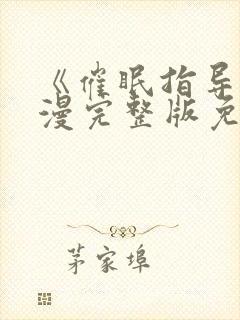 《催眠指导
漫完整版免
茅家埠